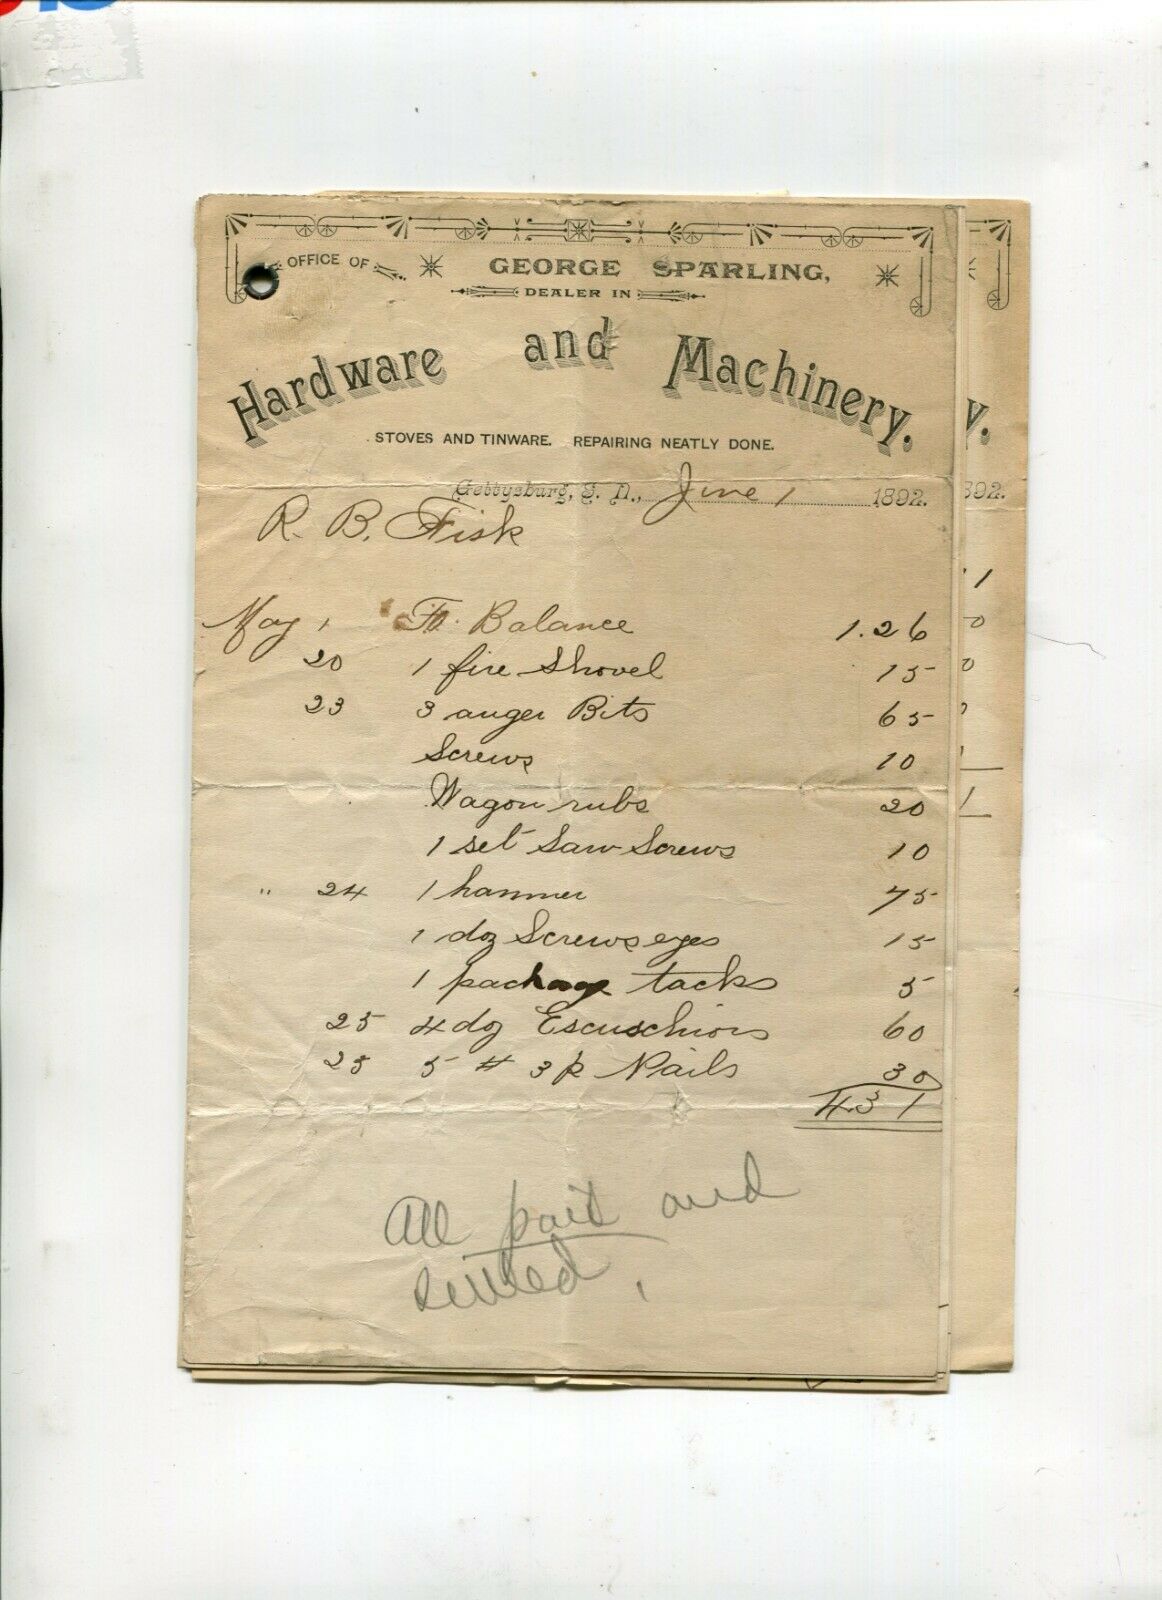 OFFICE OF
GEORGE SPARLING,
DEALER IN
Hardware and Machinery.
STOVES AND TINWARE. REPAIRING NEATLY DONE.
Gettysburg, S. D., June 1 1892.
R. B. Fisk
May 1 To Balance 1.26
20 1 fire Shovel 15
23 3 auger Bits 65
Screws 10
Wagon rubs 20
1 set Saw Screws 10
" 24 1 hammer 75
1 doz Screws eyes 15
1 package tacks 5
25 4 doz Escuschions 60
25 5 # 3 p Nails 30
431
All paid and
settled.
y.
392.